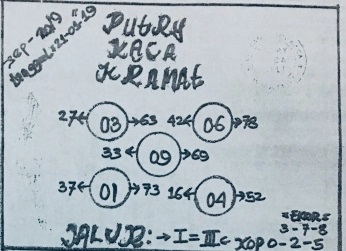 Sep-2019
tanggal: 21-05-19
PUTRY
KACA
KRAMAT
27←03→63 42←06→78
33←09→69
37←01→73 16←04→52
=EKOR=
3-7-8
JALUR:→I=III← XOP0-2-5